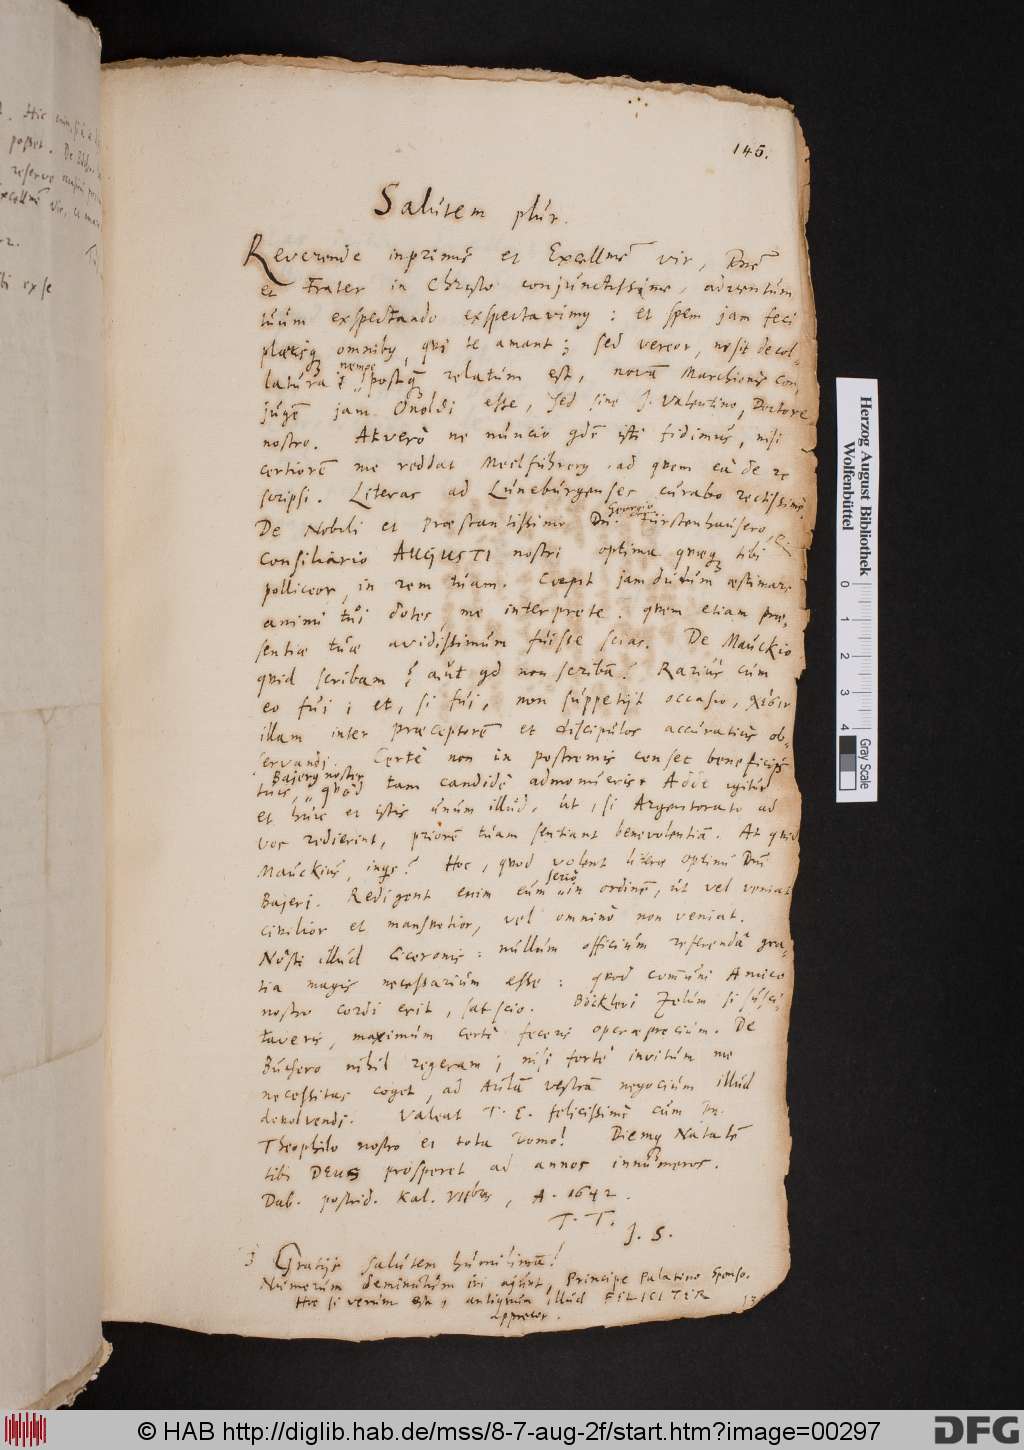 145.
Salutem plur.
Reverende inprimis et Excellme vir, Dne
et Frater in Christo conjunctissime, adventum
tuum exspectando exspectavimus: et spem jam feci
plærisq omnibus, qui te amant; sed vereor, ne sit decol-
latura: nempe postq relatum est, novā Marchionis con-
jugē jam Onoldi esse, sed sine J. Valentino, Doctore
nostro. At verò ne nuncio qdē isti fidimus, nisi
certiorē me reddat Meelfuhrerus, ad quem eâ de re
scripsi. Literas ad Lüneburgenses curabo rectissimè.
De Nobili et Præstantissimo Dn. Georgio Fürstenhausero,
Consiliario AUGUSTI nostri optima quæq tibi
polliceor, in rem tuam. Cœpit jam dudum æstimare
animi tui dotes, me interprete: quem etiam præ-
sentiæ tuæ avidissimum fuisse scias. De Mauckio
quid scribam? aut qd non scribā? Rarius cum
eo fui; et, si fui, non suppetijt occasio,
illam inter Præceptorē et discipulos accuratius ob-
servandi. Certè non in postremis consec beneficijs
tuis, quòd Bajerus noster tam candidè admonueris. Adde igitur
et huic et istis unum illud, ut, si Argentorato ad
vos redierint, priorē tuam sentiant benevolentiā. At quid
Mauckius, inqs? Hoc, quod volent literæ optimi Dni
Bajeri. Redigent enim eum serio in ordinē, ut vel veniat
civilior et mansuetior, vel omninò non veniat.
Nosti illud Ciceronis: nullum officium referendâ gra-
tia magis necessarium esse: quod communi Amico
nostro cordi erit, sat scio. Böckleri Zelum si susci-
taveris, maximum certè feceris operæprecium. De
Busero nihil regeram; nisi fortè invitum me
necessitas coget, ad Aulā vestrā negocium illud
devolvendi. Valeat T. E. felicissimè cum Dn.
Theophilo nostro et tota Domo! Diemq Natalē
tibi DEUS prosperet ad annos innumeros.
Dab. postrid. Kal. VIIbris, A. 1642.
T. T.
J. S.
Gratijs salutem humilimā!
Numerum deminutum iri ajunt, Principe Palatino Sponso.
Hoc si verum est, antiquum illud FELICITER
apprecor.
Herzog August Bibliothek
Wolfenbüttel
0 1 2 3 4
Gray Scale
© HAB http://diglib.hab.de/mss/8-7-aug-2f/start.htm?image=00297
DFG